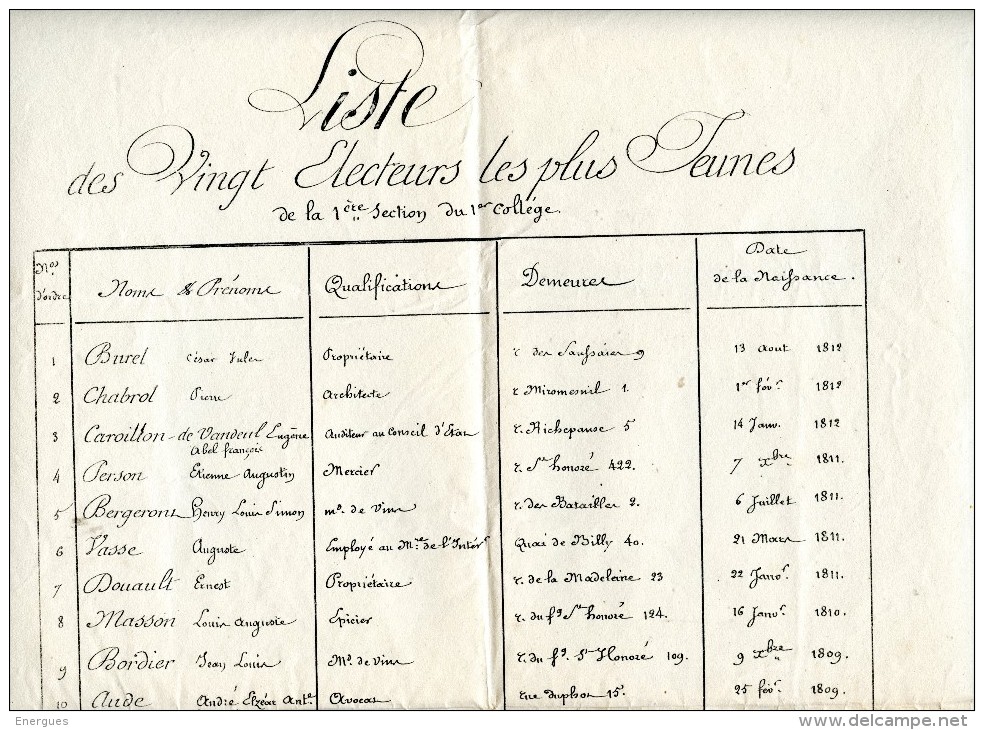 Liste
des Vingt Electeurs les plus Jeunes
de la 1ère Section du 1er Collége.
Nos d'ordre Noms & Prénoms Qualifications Demeures Date de la Naissance.
1 Burel César Jules Propriétaire r. des Saussaies 9 13 aout 1812
2 Chabrol Pierre Architecte r. Miromesnil 1. 1er févr. 1812
3 Caroillon de Vandeul Eugène Auditeur au Conseil d'Etat r. Richepanse 5 14 Janv. 1812
Abel françois
4 Person Etienne Augustin Mercier r. St honoré 422. 7 xbre 1811.
5 Bergeront Henry Louis Simon md. de Vins r. des Batailles 2. 6 Juillet 1811.
6 Vasse Auguste Employé au Mre de l'Intér. Quai de Billy 40. 21 Mars 1811.
7 Douault Ernest Propriétaire r. de la Madeleine 23 22 Janvr. 1811.
8 Masson Louis Auguste Epicier r. du fg St honoré 124. 16 Janvr. 1810.
9 Bordier Jean Louis Md. de vins r. du fg. St Honoré 109. 9 xbre 1809.
10 Aude André Elzéar Ante Avocat rue duphot 15. 25 févr. 1809.
Energues
www.delcampe.net